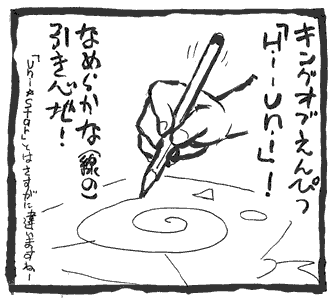 キングオブえんぴつ
「Hi-uni」!
なめらかな(線の)
引き心地!
「uni★star」とはさすがに違いますねー